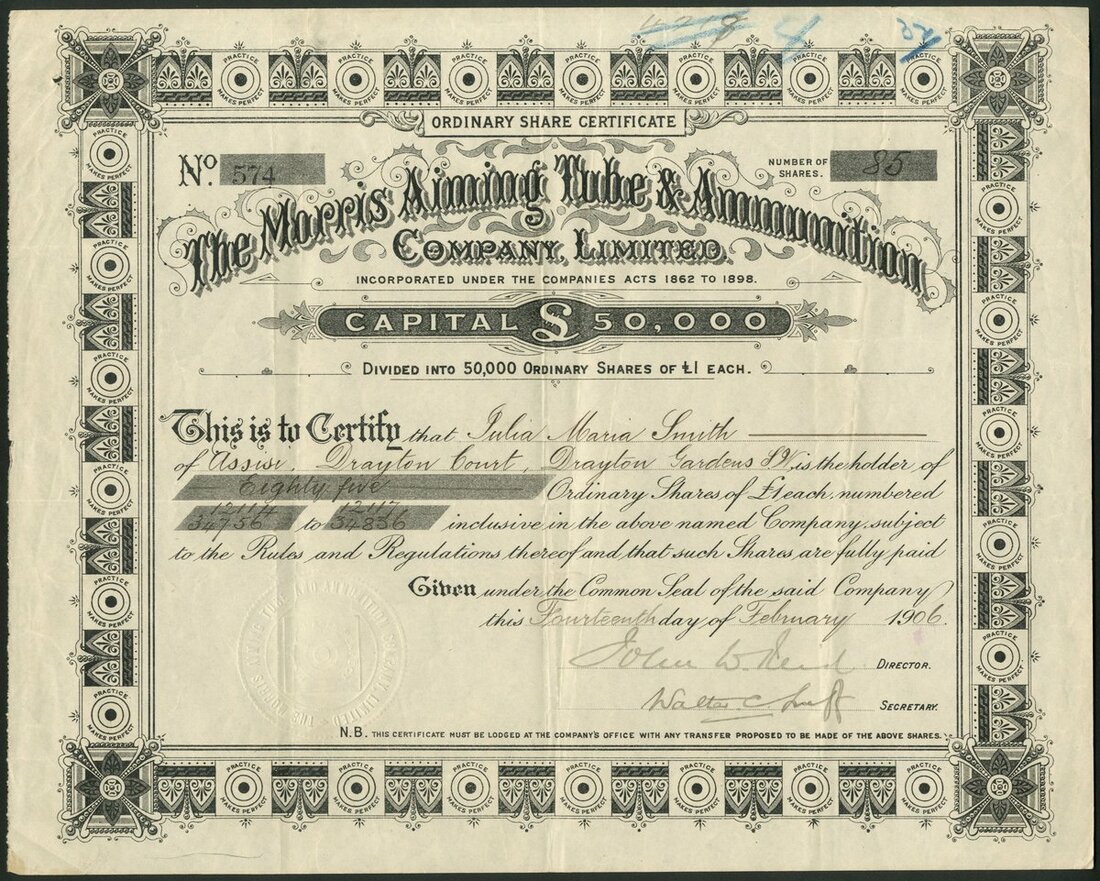 ORDINARY SHARE CERTIFICATE
No. 574
NUMBER OF SHARES. 85
The Morris Aiming Tube & Ammunition
COMPANY, LIMITED.
INCORPORATED UNDER THE COMPANIES ACTS 1862 TO 1898.
CAPITAL £50,000
DIVIDED INTO 50,000 ORDINARY SHARES OF £1 EACH.
This is to Certify that Julia Maria Smith
of Assisi, Drayton Court, Drayton Gardens SW, is the holder of
Eighty five Ordinary Shares of £1 each, numbered
34756 to 34836 inclusive in the above named Company, subject
to the Rules and Regulations thereof and that such Shares, are fully paid
Given under the Common Seal of the said Company
this Fourteenth day of February 1906.
John W. DIRECTOR.
Walter C. SECRETARY.
N.B. THIS CERTIFICATE MUST BE LODGED AT THE COMPANY'S OFFICE WITH ANY TRANSFER PROPOSED TO BE MADE OF THE ABOVE SHARES.
PRACTICE MAKES PERFECT